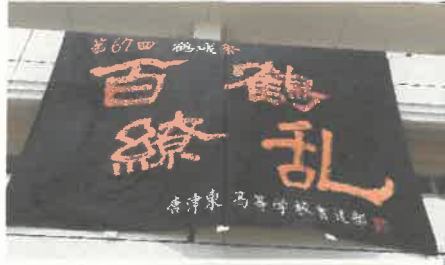 第67回 鶴城祭
百鶴
繚乱
唐津東高等学校書道部